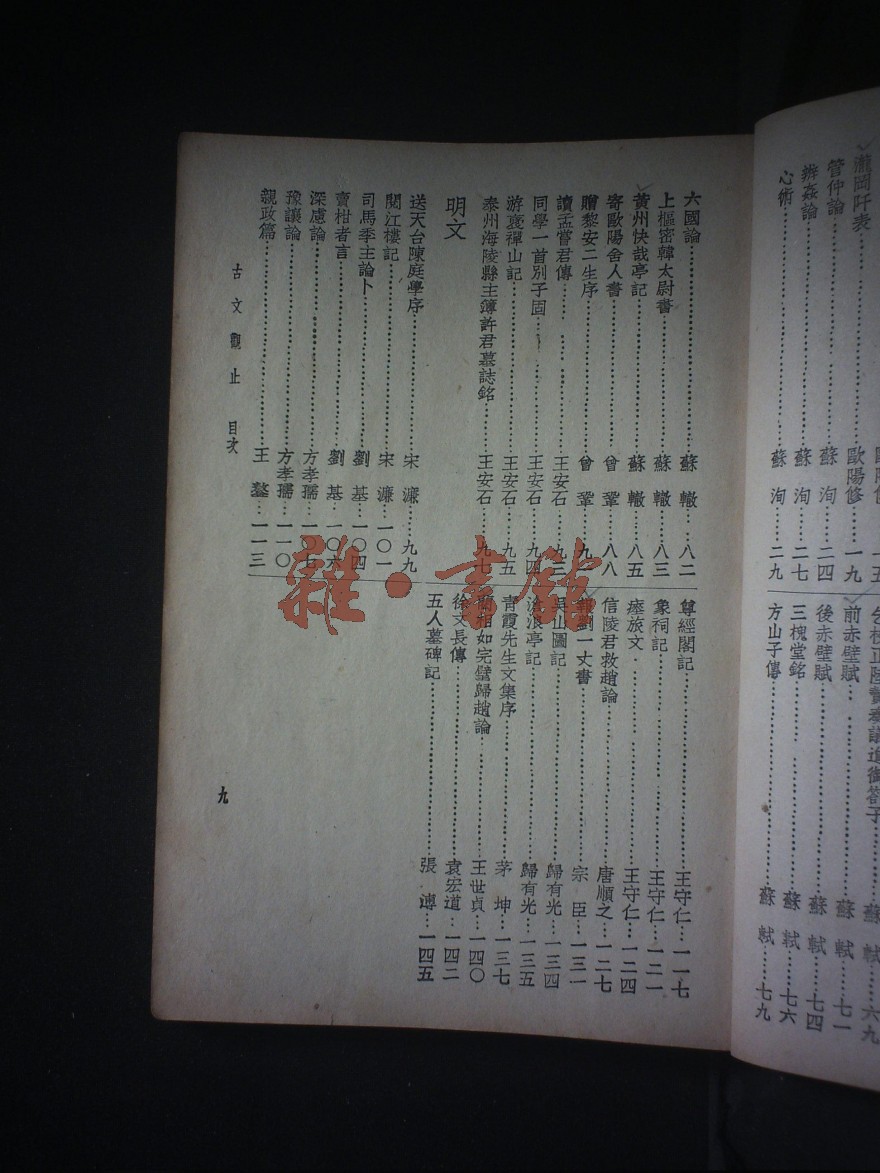 瀧岡阡表……歐陽修…一九
管仲論……蘇洵…二四
辨姦論……蘇洵…二七
心術……蘇洵…二九
前赤壁賦……蘇軾…七一
後赤壁賦……蘇軾…七四
三槐堂銘……蘇軾…七六
方山子傳……蘇軾…七九
六國論……蘇轍…八二
上樞密韓太尉書……蘇轍…八三
黃州快哉亭記……蘇轍…八五
寄歐陽舍人書……曾鞏…八八
贈黎安二生序……曾鞏…九
讀孟嘗君傳……王安石…九三
同學一首別子固……王安石…九四
游褒禪山記……王安石…九五
泰州海陵縣主簿許君墓誌銘……王安石…九七
明文
送天台陳庭學序……宋濂…九九
閱江樓記……宋濂…一〇一
司馬季主論卜……劉基…一〇四
賣柑者言……劉基…一〇六
深慮論……方孝孺…一〇七
豫讓論……方孝孺…一一〇
親政篇……王鏊…一一三
尊經閣記……王守仁…一一七
象祠記……王守仁…一二一
瘞旅文……王守仁…一二四
信陵君救趙論……唐順之…一二七
劉一丈書……宗臣…一三一
吳山圖記……歸有光…一三四
滄浪亭記……歸有光…一三五
青霞先生文集序……茅坤…一三七
藺相如完璧歸趙論……王世貞…一四〇
徐文長傳……袁宏道…一四二
五人墓碑記……張溥…一四五
古文觀止 目次
九
雜·書館